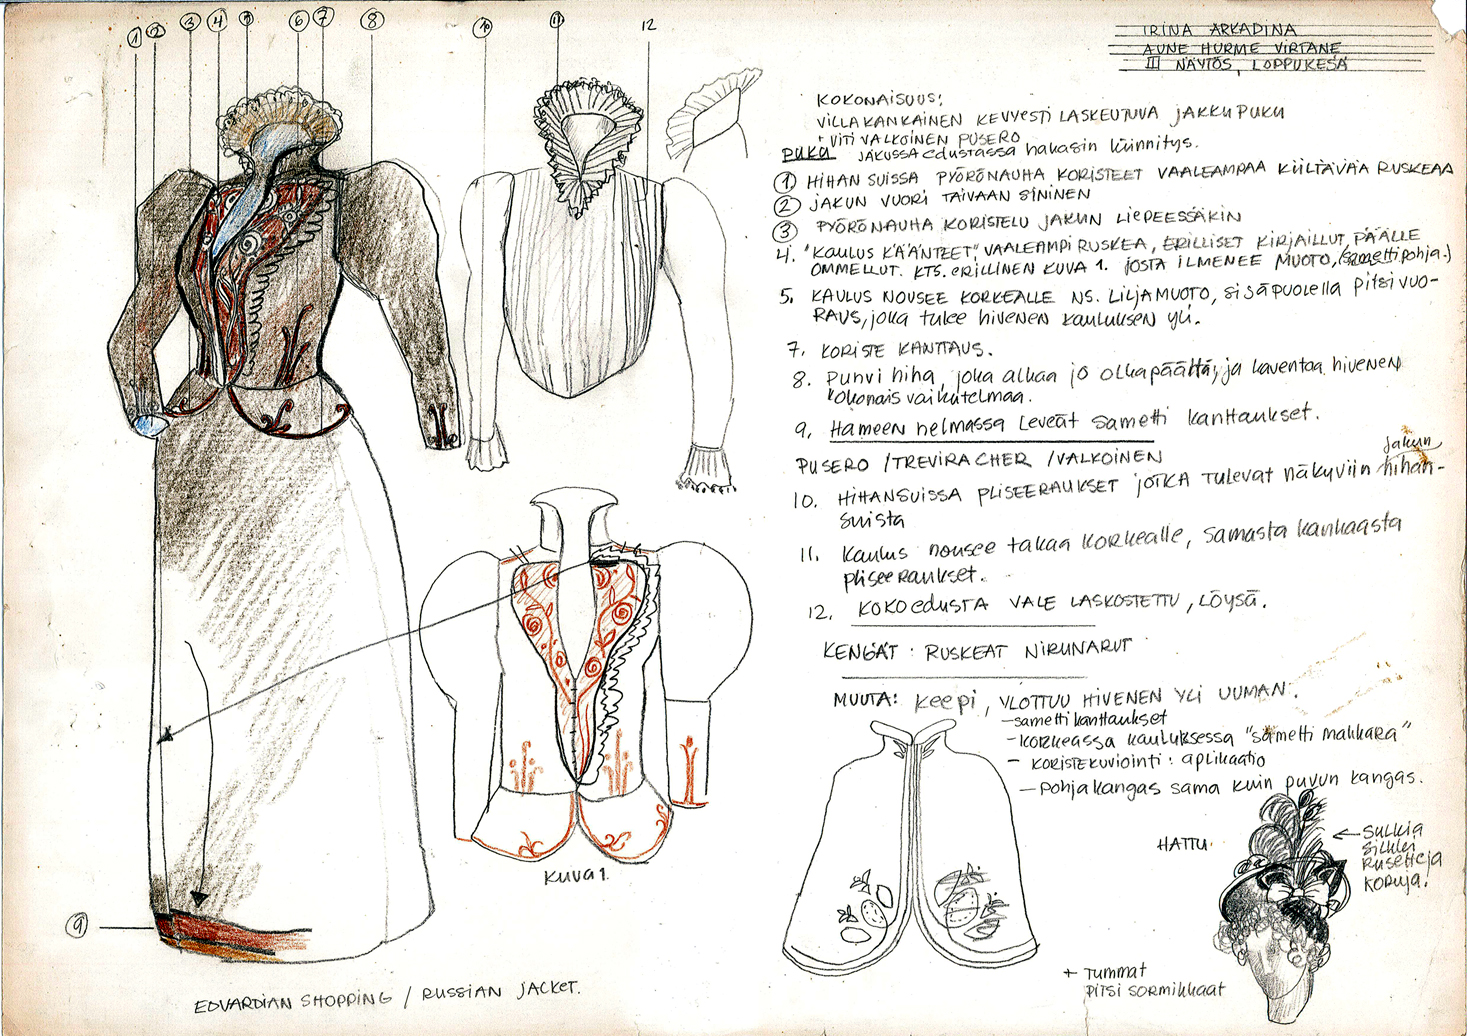 1 2 3 4 5 6 7 8 10 11 12
IRINA ARKADINA
AUNE HURME VIRTANE
III NÄYTÖS, LOPPUKESÄ
KOKONAISUUS:
VILLAKANKAINEN KEVYESTI LASKEUTUVA JAKKUPUKU
+ VITIVALKOINEN PUSERO
PUKU JAKUSSA edustassa hakasin kiinnitys.
1 HIHAN SUISSA PYÖRÖNAUHA KORISTEET VAALEAMPAA KIILTÄVÄÄ RUSKEAA
2 JAKUN VUORI TAIVAAN SININEN
3 PYÖRÖNAUHA KORISTELU JAKUN LIEPEESSÄKIN
4. "KAULUS KÄÄNTEET", VAALEAMPI RUSKEA, ERILLISET KIRJAILLUT, PÄÄLLE
OMMELLUT. KTS. ERILLINEN KUVA 1. JOSTA ILMENEE MUOTO, (Samettipohja.)
5. KAULUS NOUSEE KORKEALLE NS. LILJAMUOTO, SISÄPUOLELLA PITSIVUO-
RAUS, joka tulee hivenen kauluksen yli.
7. KORISTE KANTTAUS.
8. Puhvi hiha, joka alkaa jo olkapäältä, ja kaventaa hivenen
kokonais vaikutelmaa.
9. Hameen helmassa Leveät Sametti kanttaukset.
PUSERO / TREVIRACHER / VALKOINEN
jakun
10. HIHANSUISSA PLISEERAUKSET JOTKA TULEVAT NÄKYVIIN hihan-
suista
11. Kaulus nousee takaa korkealle, samasta kankaasta
pliseeraukset.
12. KOKOEDUSTA VALE LASKOSTETTU, LÖYSÄ.
KENGÄT: RUSKEAT NIRUNARUT
MUUTA: Keepi, YLOTTUU HIVENEN YLI UUMAN.
- samettikanttaukset
- KORKEASSA kauluksessa "sametti makkara"
- KORISTEKUVIOINTI: aplikaatio
- Pohjakangas sama kuin puvun kangas.
HATTU
← SULKIA
SILKKI
RUSETTEJA
KORUJA.
+ TUMMAT
PITSI SORMIKKAAT
KUVA 1.
9
EDVARDIAN SHOPPING / RUSSIAN JACKET.